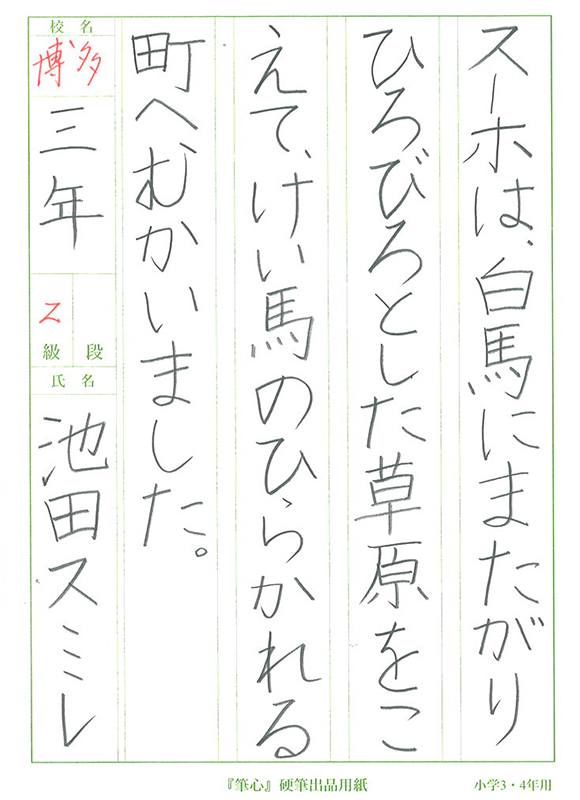 スーホは、白馬にまたがり
ひろびろとした草原をこ
えて、けい馬のひらかれる
町へむかいました。
校名
博多
三年
級 段
氏名
池田スミレ
『筆心』硬筆出品用紙
小学3・4年用